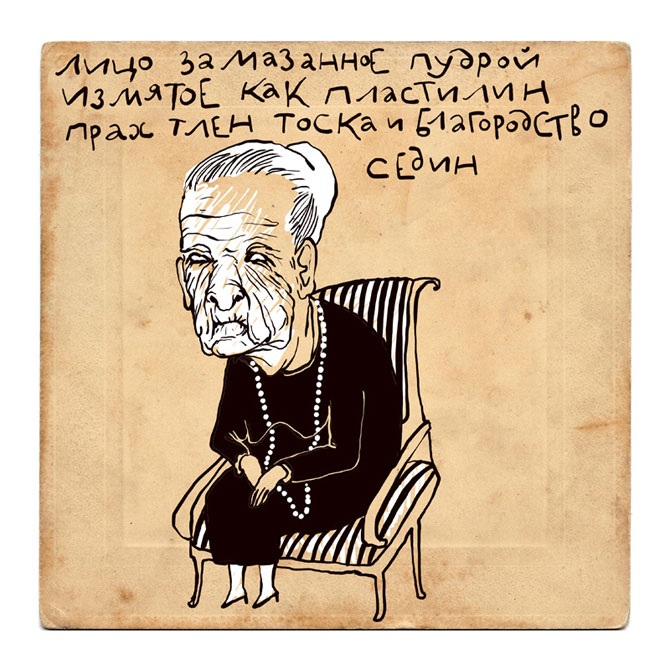 лицо замазанное пудрой
измятое как пластилин
прах тлен тоска и благородство
седин